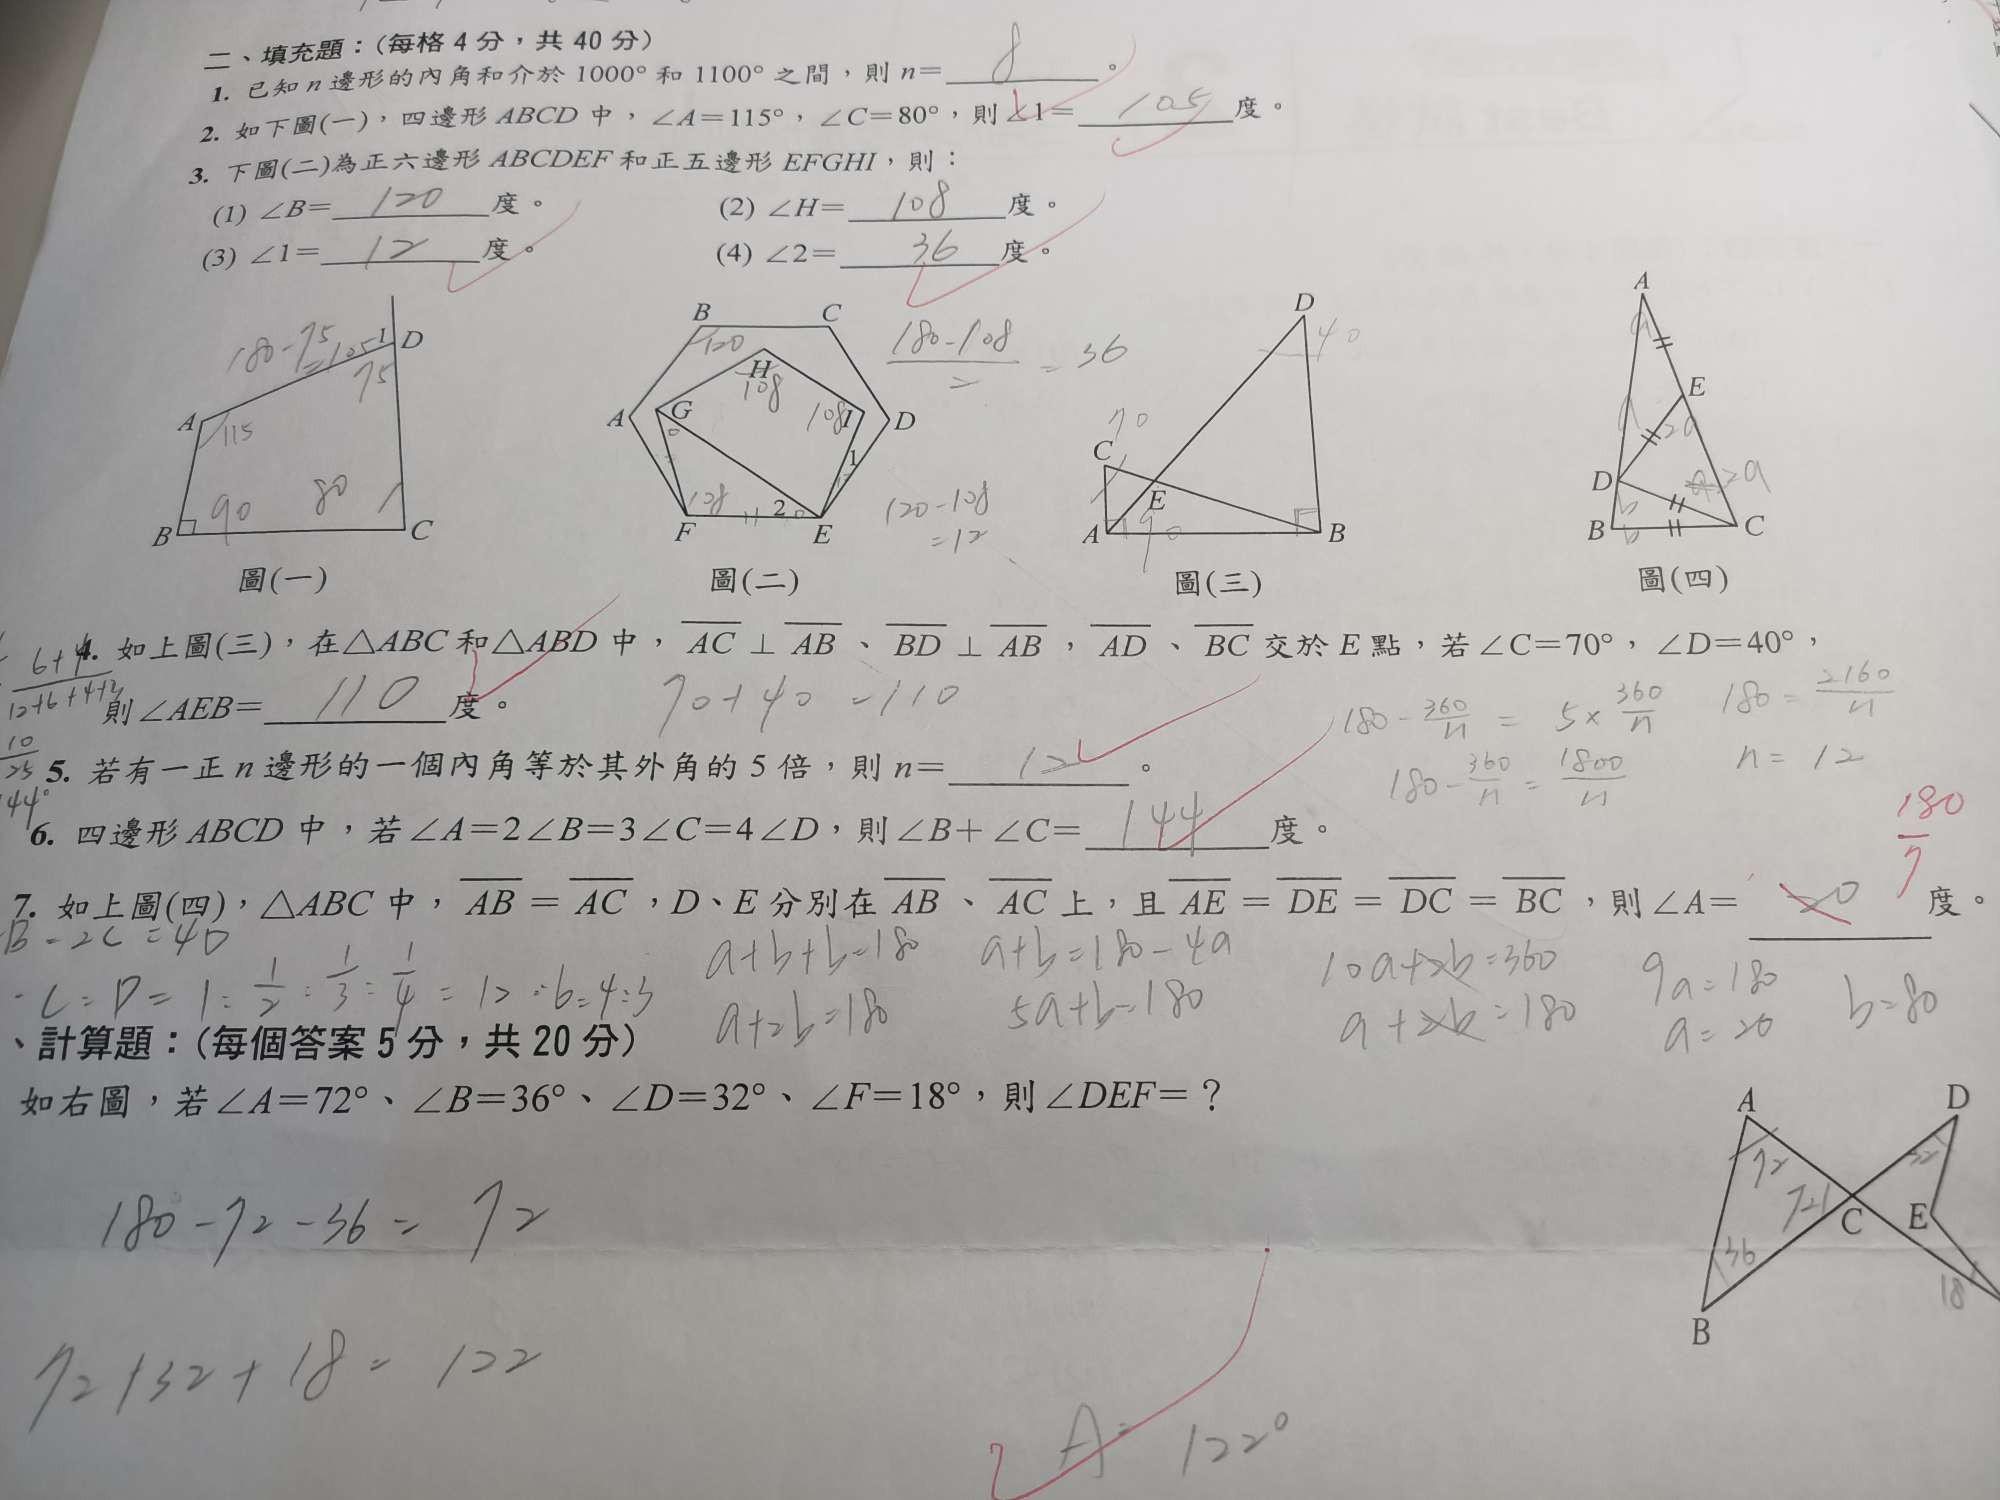 二、填充題：(每格 4 分，共 40 分)
1. 已知 n 邊形的內角和介於 1000° 和 1100° 之間，則 n= 8 。
2. 如下圖(一)，四邊形 ABCD 中，∠A=115°，∠C=80°，則 ∠1= 105 度。
3. 下圖(二)為正六邊形 ABCDEF 和正五邊形 EFGHI，則：
(1) ∠B= 120 度。 (2) ∠H= 108 度。
(3) ∠1= 12 度。 (4) ∠2= 36 度。
180-75=105 1 D 75 A 115 B 90 80 C
圖(一)
B C 120 H 108 A G 108 I D 1 12 108 2 F E
180-108/2 = 36
120-108
=12
圖(二)
D 40 70 C E A 90 B
圖(三)
A a E a 2a D 2a b B b C
圖(四)
4. 如上圖(三)，在△ABC 和△ABD 中，AC ⊥ AB、BD ⊥ AB，AD、BC 交於 E 點，若 ∠C=70°，∠D=40°，
則 ∠AEB= 110 度。 70+40=110
6+4/12+6+4+3
10/25
144°
180-360/n = 5×360/n 180=2160/n
180-360/n=1800/n n=12
5. 若有一正 n 邊形的一個內角等於其外角的 5 倍，則 n= 12 。
6. 四邊形 ABCD 中，若 ∠A=2∠B=3∠C=4∠D，則 ∠B+∠C= 144 度。
180/7
7. 如上圖(四)，△ABC 中，AB = AC，D、E 分別在 AB、AC 上，且 AE = DE = DC = BC，則 ∠A= 20 度。
a+b+b=180 a+b=180-4a 10a+2b=360 9a=180 b=80
a+2b=180 5a+b=180 a+2b=180 a=20
C:D=1:1/2:1/3:1/4=12:6:4:3
、計算題：(每個答案 5 分，共 20 分)
如右圖，若 ∠A=72°、∠B=36°、∠D=32°、∠F=18°，則 ∠DEF=？
A D 72 32 72 C E 36 18 B
180-72-36=72
72+32+18=122
A= 122°